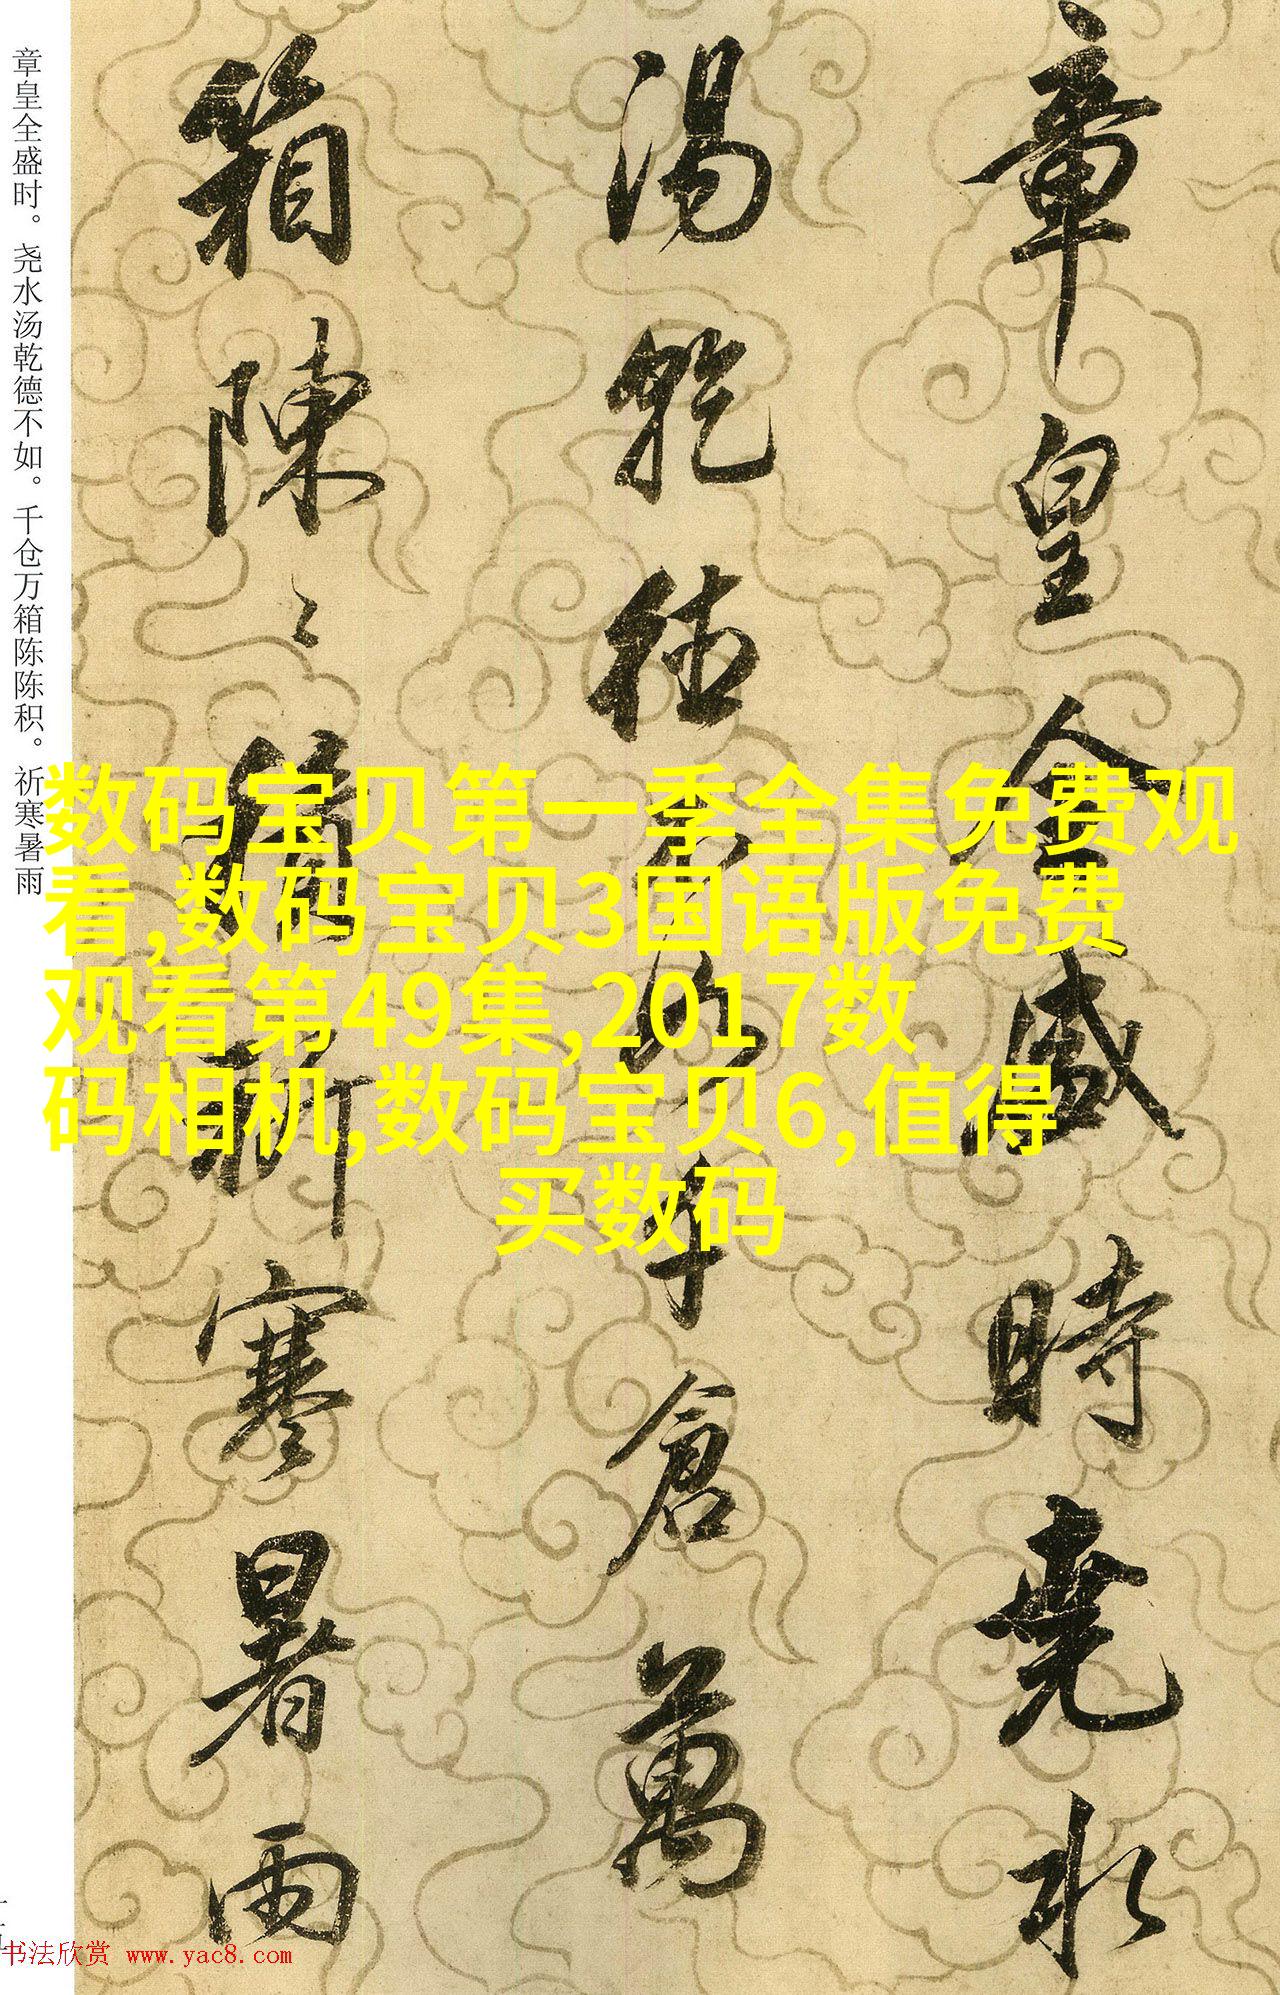 章皇全盛時堯水
湯乾德不如千倉萬
箱陳〻積祈寒暑雨
章皇全盛时。尧水汤乾德不如。千仓万箱陈陈积。祈寒暑雨
数码宝贝第一季全集免费观
看,数码宝贝3国语版免费
观看第49集,2017数
码相机,数码宝贝6,值得
买数码
书法欣赏 www.yac8.com